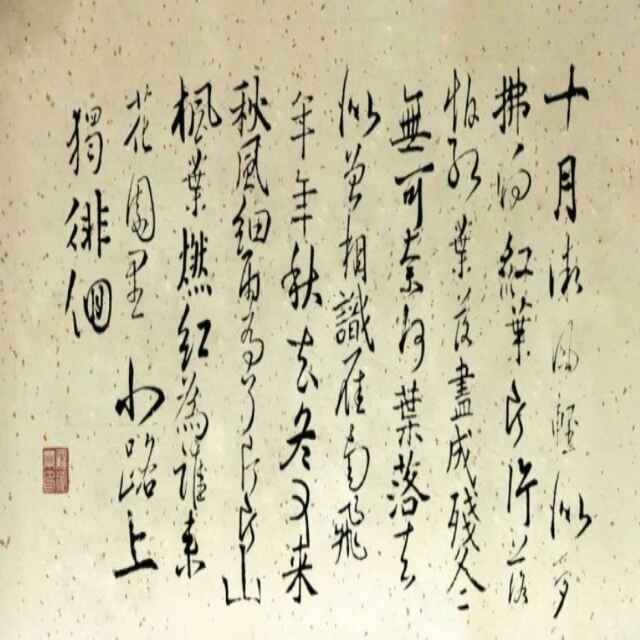 十月輕似夢
拂紅葉片片落
葉落盡成殘
無可奈何葉落去
似曾相識雁南飛
年年秋去冬又来
秋風細雨為了片片山
楓葉燃紅為誰来
花園里 小路上
獨徘徊